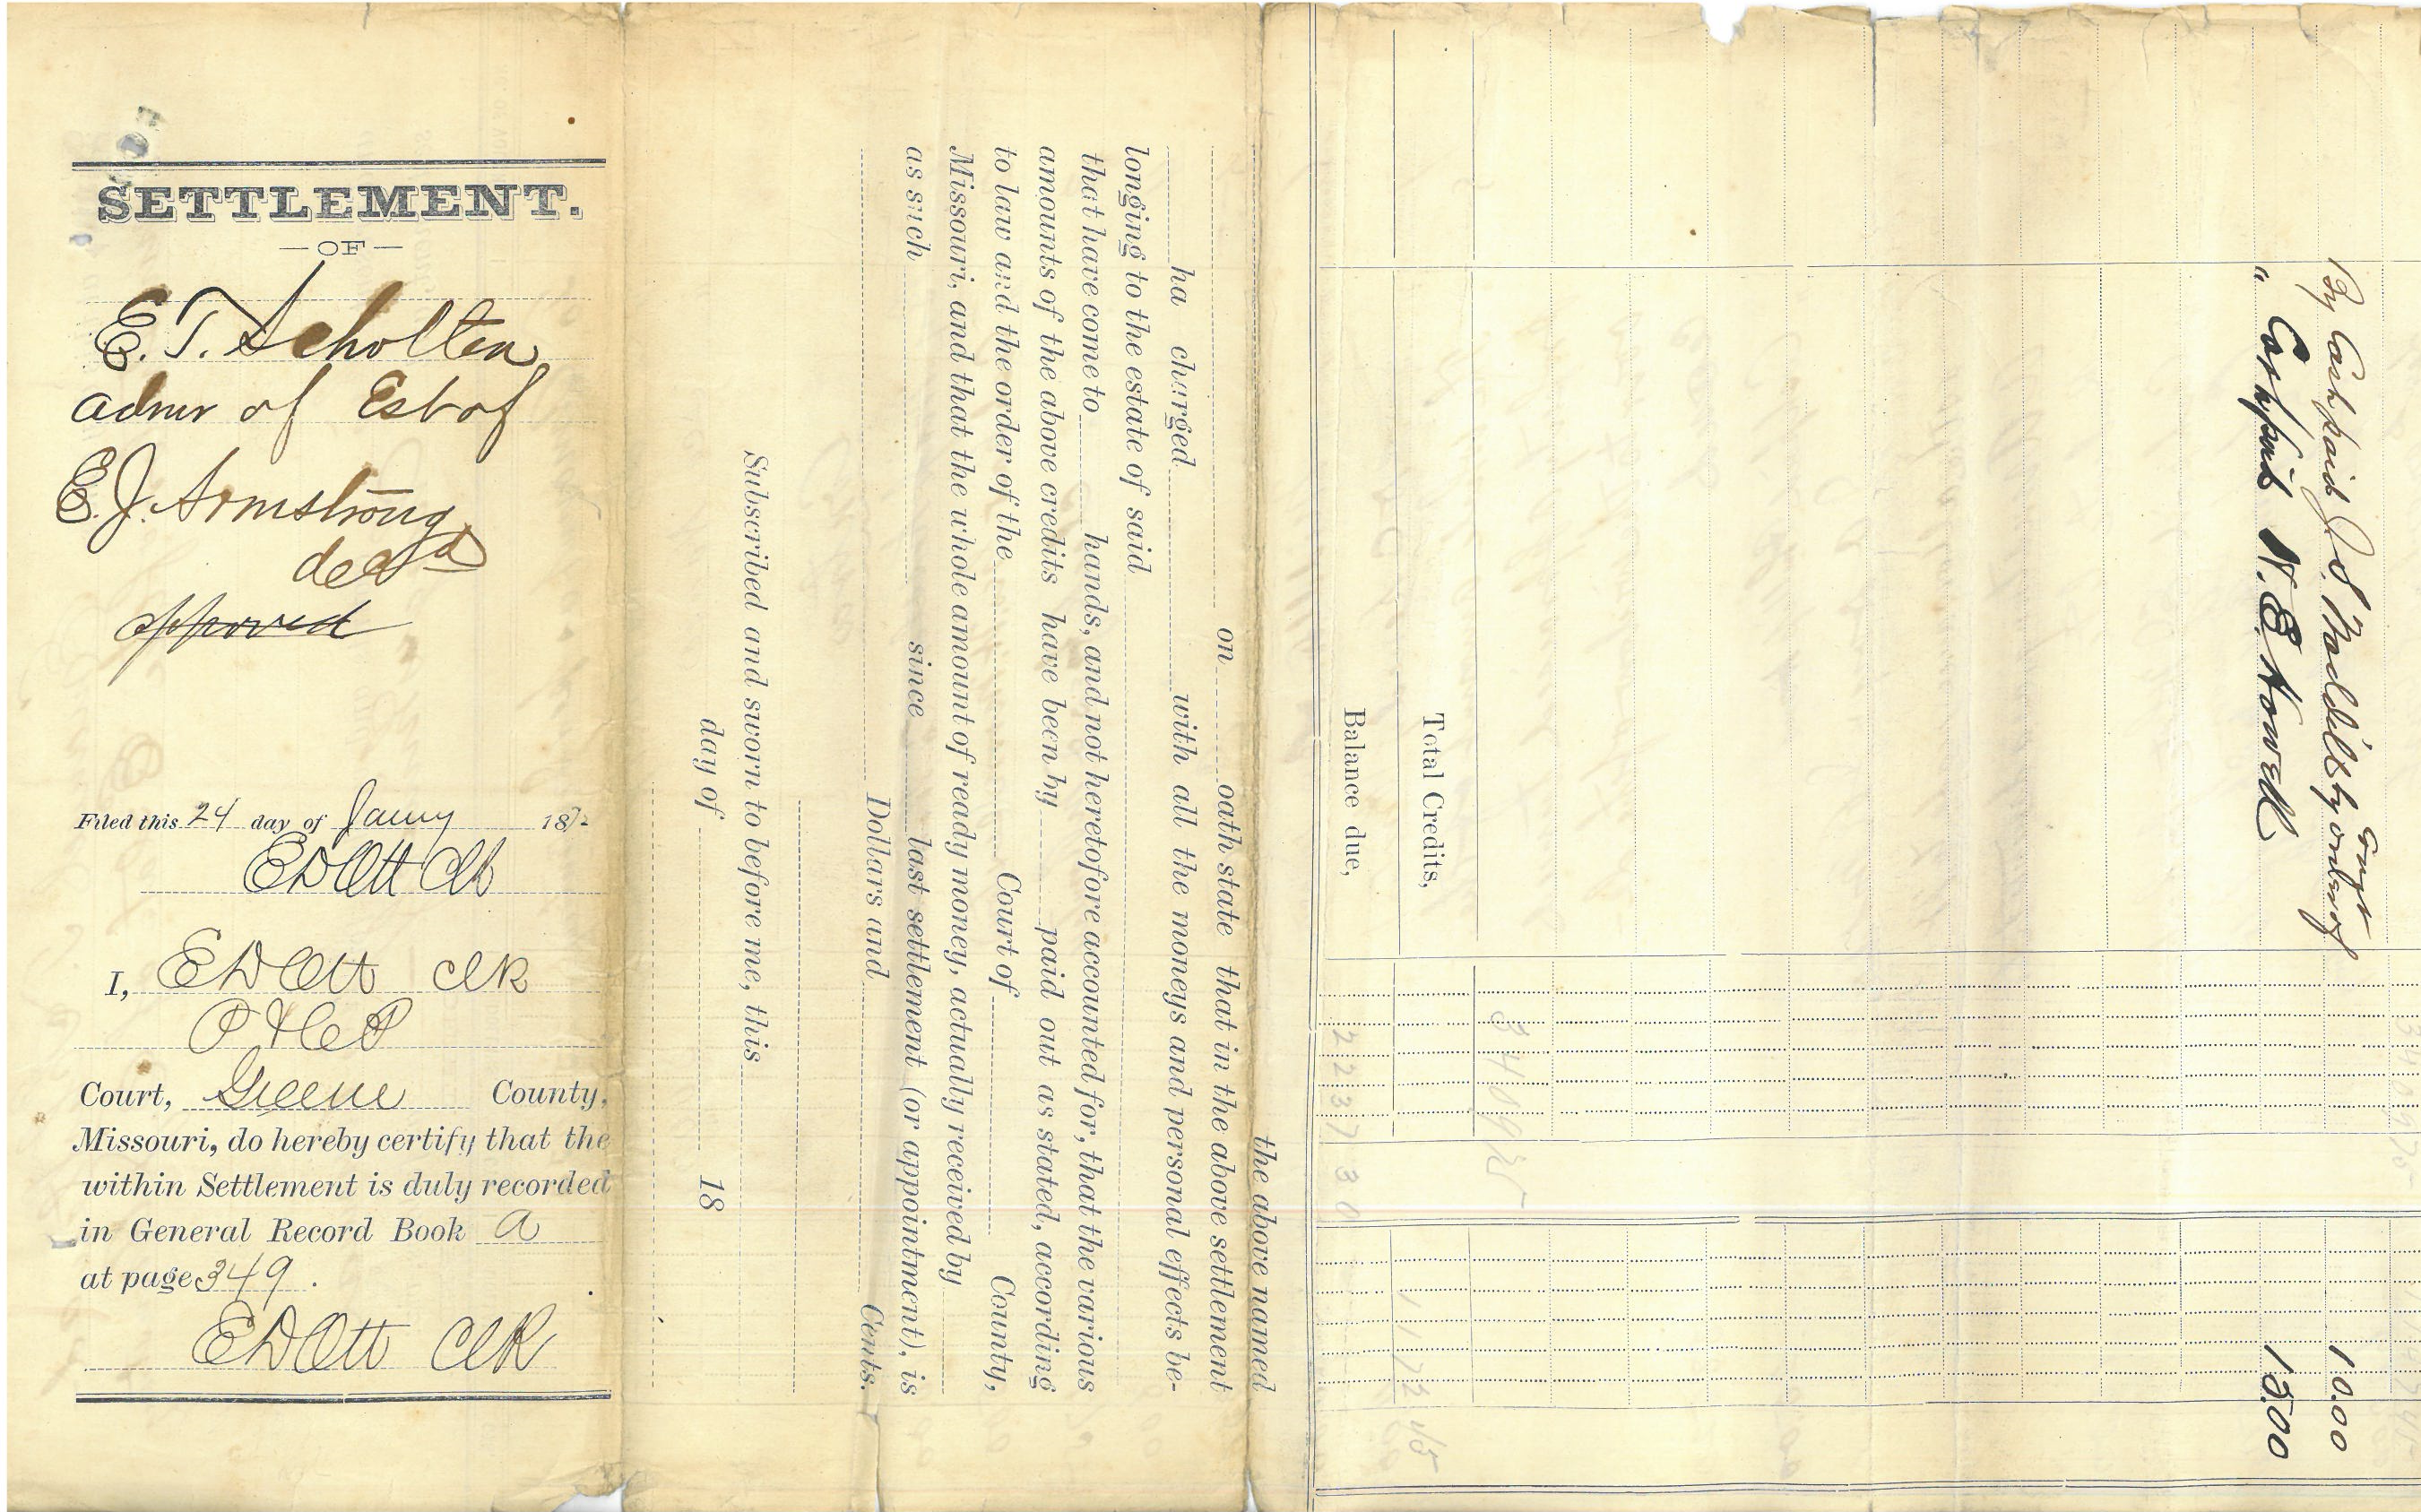 SETTLEMENT.
—OF—
E. T. Scholten
admr of Est of
E. J. Armstrong
decd
approved
Filed this 24 day of Jany 187
E D Ott Clk
I, E D Ott Clk
P
Court, Greene County,
Missouri, do hereby certify that the
within Settlement is duly recorded
in General Record Book a
at page 349.
E D Ott Clk
By Cash paid J. S. by order of Court 10.00
" Cash paid N. E. Howell 15.00
Total Credits,
Balance due,
the above named
on oath state that in the above settlement
ha charged with all the moneys and personal effects be-
longing to the estate of said
that have come to hands, and not heretofore accounted for, that the various
amounts of the above credits have been by paid out as stated, according
to law and the order of the Court of County,
Missouri, and that the whole amount of ready money, actually received by
as such since last settlement (or appointment), is
Dollars and Cents.
Subscribed and sworn to before me, this
day of 18